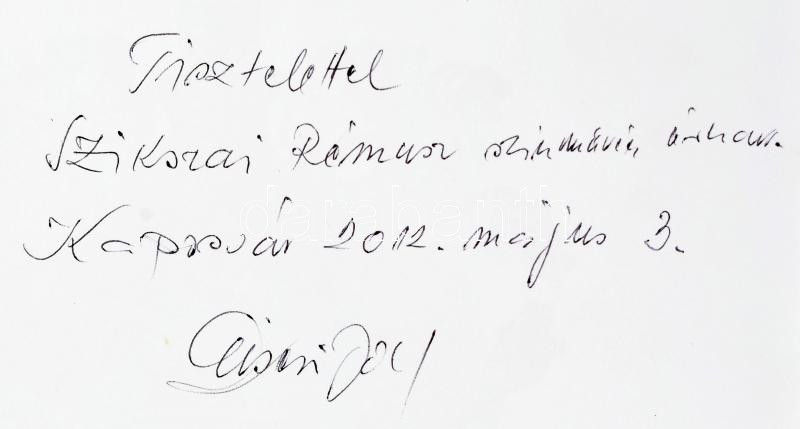 Tisztelettel
Szikszai Rémusz színművész úrnak.
Kaposvár 2012. május 3.
darabanth